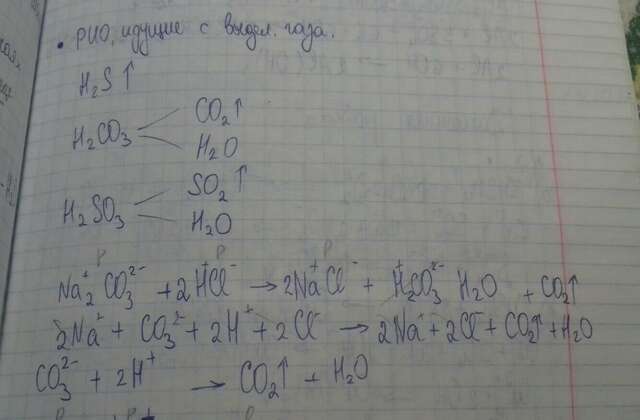 • РИО, идущие с выдел. газа.
H₂S↑
CO₂↑
H₂CO₃
H₂O
SO₂↑
H₂SO₃
H₂O
р р р
Na₂⁺CO₃²⁻ + 2H⁺Cl⁻ → 2Na⁺Cl⁻ + H₂⁺CO₃²⁻ H₂O + CO₂↑
2Na⁺ + CO₃²⁻ + 2H⁺ + 2Cl⁻ → 2Na⁺ + 2Cl⁻ + CO₂↑ + H₂O
CO₃²⁻ + 2H⁺ → CO₂↑ + H₂O